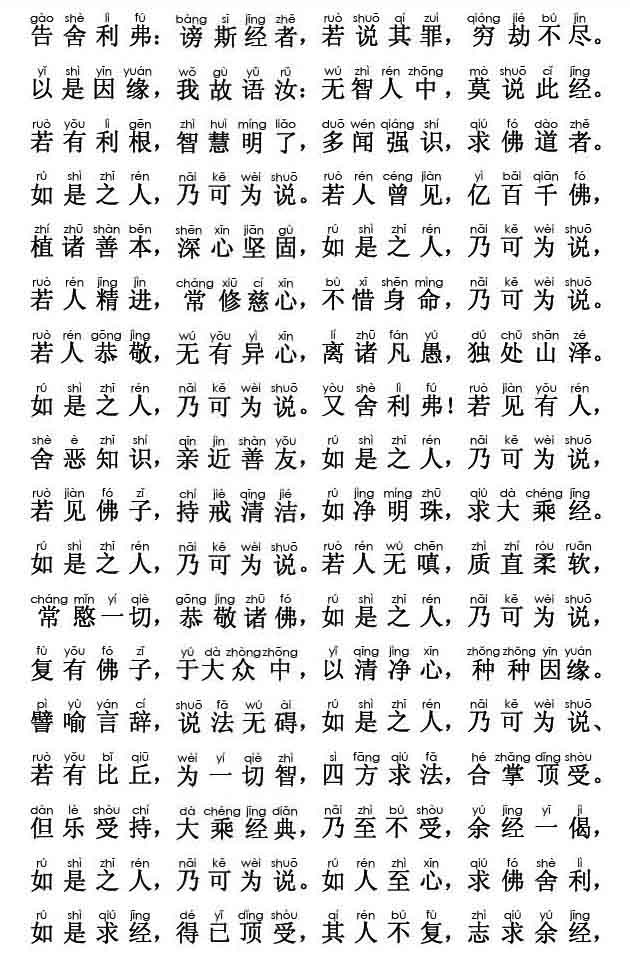 gào shè lì fú bàng sī jīng zhě ruò shuō qí zuì qióng jié bù jìn
告舍利弗：谤斯经者，若说其罪，穷劫不尽。
yǐ shì yīn yuán wǒ gù yǔ rǔ wú zhì rén zhōng mò shuō cǐ jīng
以是因缘，我故语汝：无智人中，莫说此经。
ruò yǒu lì gēn zhì huì míng liǎo duō wén qiáng shí qiú fó dào zhě
若有利根，智慧明了，多闻强识，求佛道者。
rú shì zhī rén nǎi kě wèi shuō ruò rén céng jiàn yì bǎi qiān fó
如是之人，乃可为说。若人曾见，亿百千佛，
zhí zhū shàn běn shēn xīn jiān gù rú shì zhī rén nǎi kě wèi shuō
植诸善本，深心坚固，如是之人，乃可为说，
ruò rén jīng jìn cháng xiū cí xīn bù xī shēn mìng nǎi kě wèi shuō
若人精进，常修慈心，不惜身命，乃可为说。
ruò rén gōng jìng wú yǒu yì xīn lí zhū fán yú dú chǔ shān zé
若人恭敬，无有异心，离诸凡愚，独处山泽。
rú shì zhī rén nǎi kě wèi shuō yòu shè lì fú ruò jiàn yǒu rén
如是之人，乃可为说。又舍利弗！若见有人，
shè è zhī shí qīn jìn shàn yǒu rú shì zhī rén nǎi kě wèi shuō
舍恶知识，亲近善友，如是之人，乃可为说，
ruò jiàn fó zǐ chí jiè qīng jié rú jìng míng zhū qiú dà chéng jīng
若见佛子，持戒清洁，如净明珠，求大乘经。
rú shì zhī rén nǎi kě wèi shuō ruò rén wú chēn zhì zhí róu ruǎn
如是之人，乃可为说。若人无嗔，质直柔软，
cháng mǐn yí qiè gōng jìng zhū fó rú shì zhī rén nǎi kě wèi shuō
常愍一切，恭敬诸佛，如是之人，乃可为说，
fù yǒu fó zǐ yú dà zhòng zhōng yǐ qīng jìng xīn zhǒng zhǒng yīn yuán
复有佛子，于大众中，以清净心，种种因缘。
pì yù yán cí shuō fǎ wú ài rú shì zhī rén nǎi kě wèi shuō
譬喻言辞，说法无碍，如是之人，乃可为说、
ruò yǒu bǐ qiū wèi yí qiè zhì sì fāng qiú fǎ hé zhǎng dǐng shòu
若有比丘，为一切智，四方求法，合掌顶受。
dàn lè shòu chí dà chéng jīng diǎn nǎi zhì bù shòu yú jīng yī jì
但乐受持，大乘经典，乃至不受，余经一偈，
rú shì zhī rén nǎi kě wèi shuō rú rén zhì xīn qiú fó shè lì
如是之人，乃可为说。如人至心，求佛舍利，
rú shì qiú jīng dé yǐ dǐng shòu qí rén bù fù zhì qiú yú jīng
如是求经，得已顶受，其人不复，志求余经，